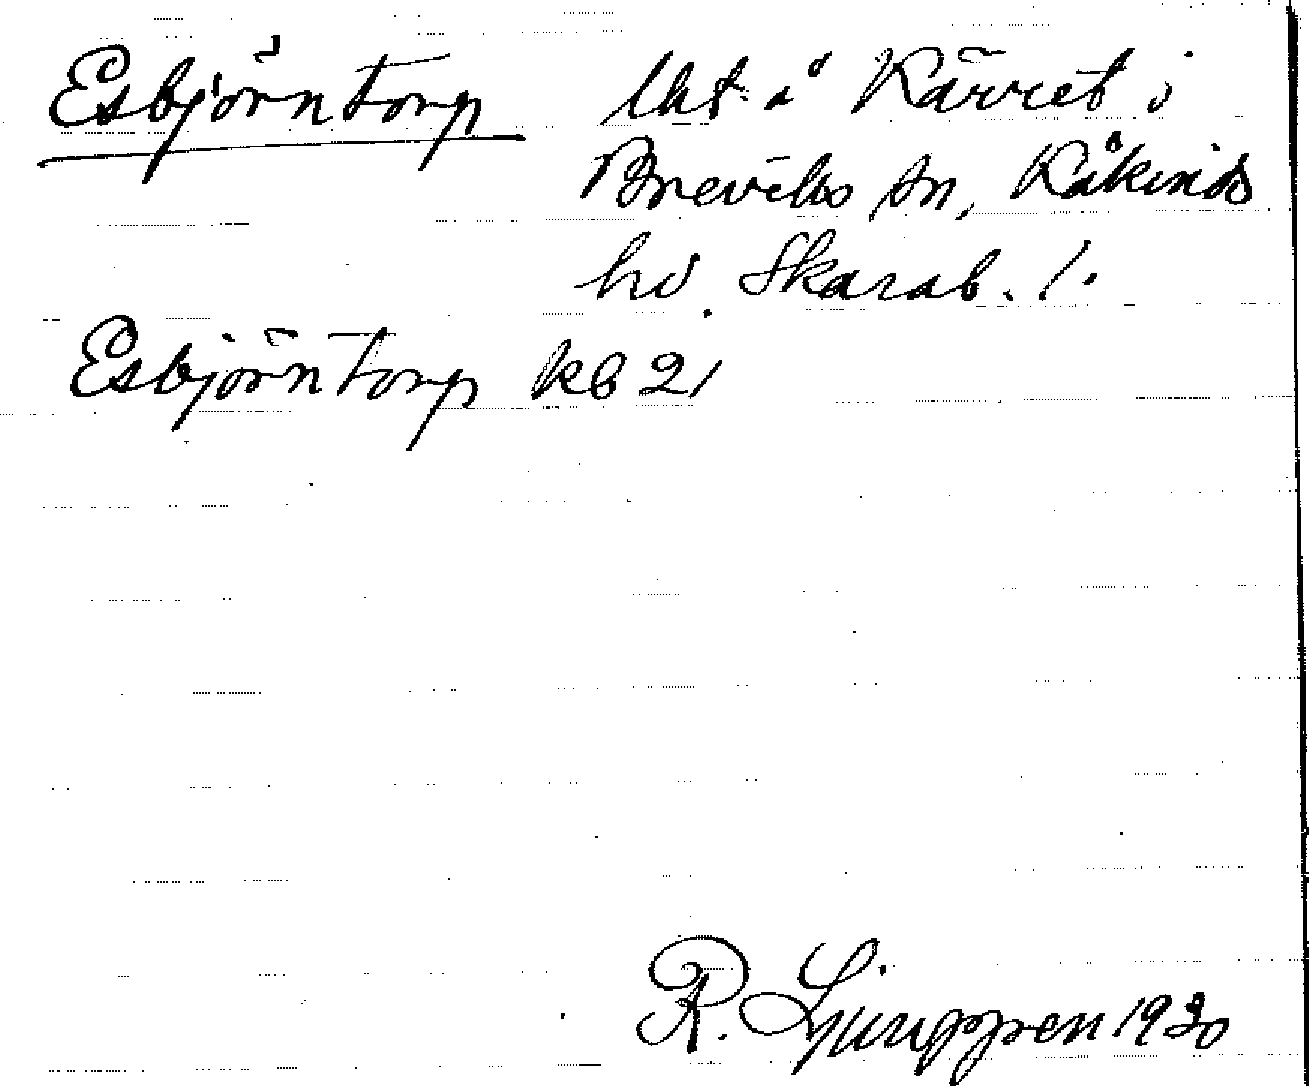 Esbjörntorp lht. å Kärret i
Breviks sn, Kåkinds
hd. Skarab. l.
Esbjörntorp kb 21
R. Ljunggren 1930